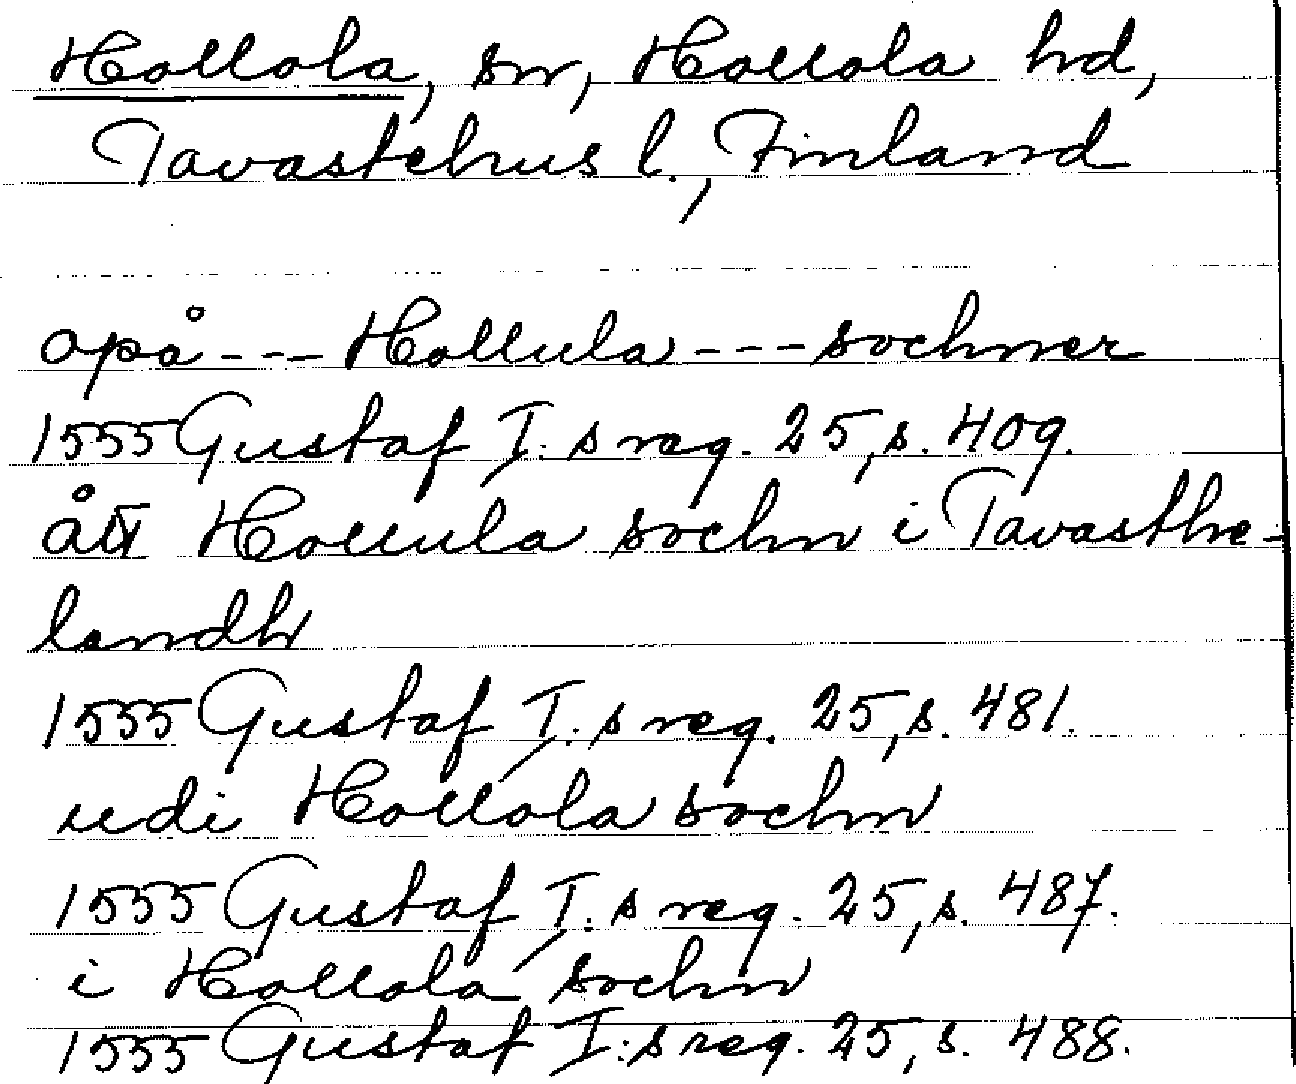 Hollola, sn, Hollola hd,
Tavastehus l., Finland
opå --- Hollula --- sochner
1555 Gustaf I:s reg. 25, s. 409.
ått Hollula sochn i Tavasthe-
landh
1555 Gustaf I:s reg. 25, s. 481.
udi Hollola sochn
1555 Gustaf I:s reg. 25, s. 487.
i Hollola sochn
1555 Gustaf I:s reg. 25, s. 488.